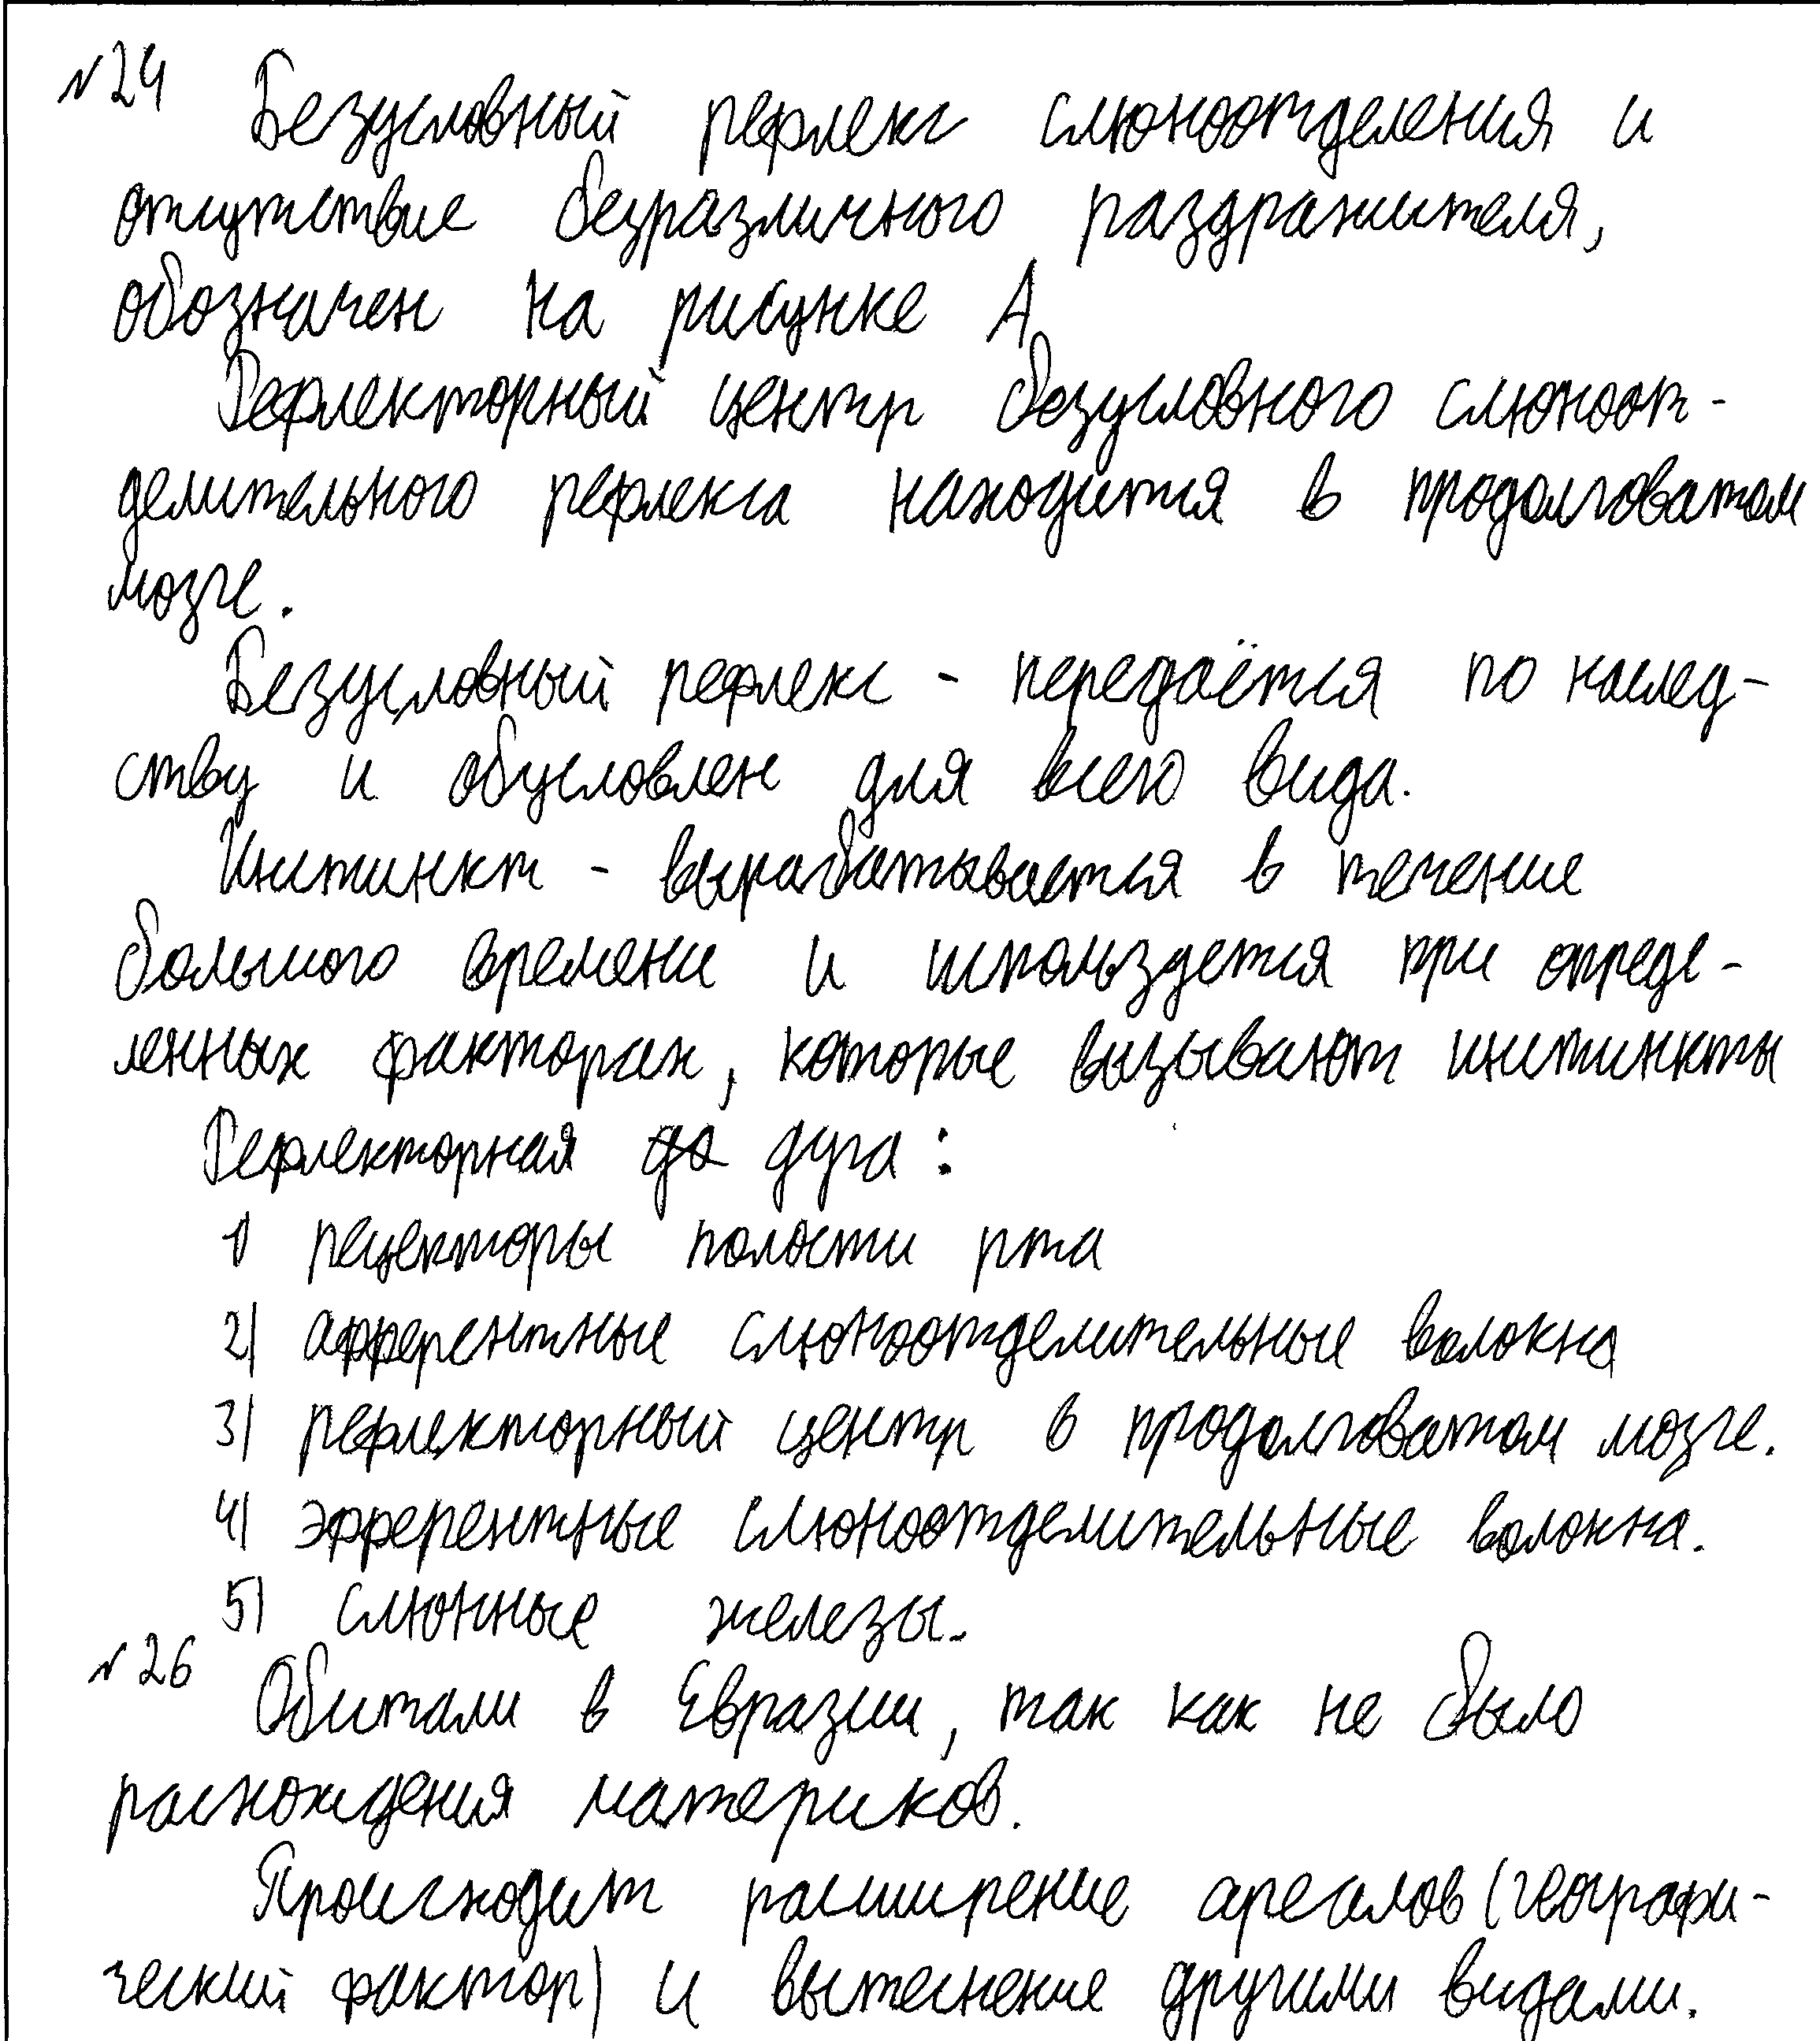 №24 Безусловный рефлекс слюноотделения и
отсутствие безразличного раздражителя,
обозначен на рисунке А
Рефлекторный центр безусловного слюноот-
делительного рефлекса находится в продолговатом
мозге.
Безусловный рефлекс - передаётся по наслед-
ству и обусловлен для всего вида.
Инстинкт - вырабатывается в течение
большого времени и используется при опреде-
ленных факторах, которые вызывают инстинкты
Рефлекторная да дуга:
1) рецепторы полости рта
2) афферентные слюноотделительные волокна
3) рефлекторный центр в продолговатом мозге.
4) эфферентные слюноотделительные волокна.
5) слюнные железы.
№26 Обитали в Евразии, так как не было
расхождения материков.
Происходит расширение ареалов (географи-
ческий фактор) и вытеснение другими видами.